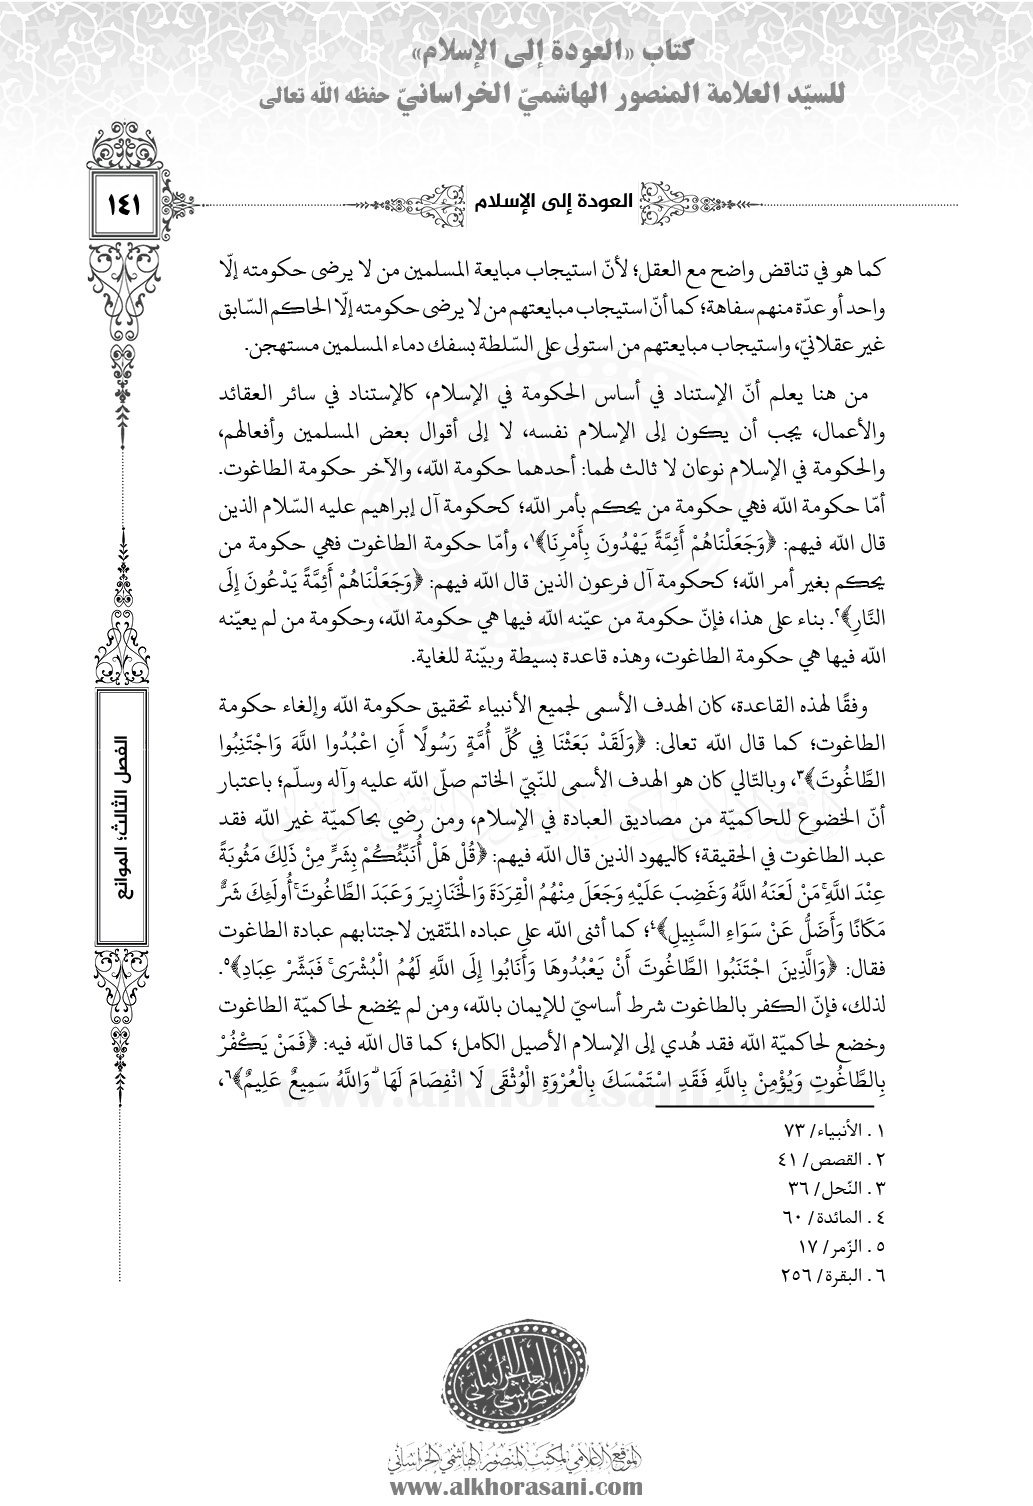 كتاب «العودة إلى الإسلام»
للسيّد العلامة المنصور الهاشميّ الخراسانيّ حفظه الله تعالى
١٤١
العودة إلى الإسلام
كما هو في تناقض واضح مع العقل؛ لأنّ استيجاب مبايعة المسلمين من لا يرضى حكومته إلّا
واحد أو عدّة منهم سفاهة؛ كما أنّ استيجاب مبايعتهم من لا يرضى حكومته إلّا الحاكم السّابق
غير عقلانيّ، واستيجاب مبايعتهم من استولى على السّلطة بسفك دماء المسلمين مستهجن.
من هنا يعلم أنّ الإستناد في أساس الحكومة في الإسلام، كالإستناد في سائر العقائد
والأعمال، يجب أن يكون إلى الإسلام نفسه، لا إلى أقوال بعض المسلمين وأفعالهم،
والحكومة في الإسلام نوعان لا ثالث لهما: أحدهما حكومة الله، والآخر حكومة الطاغوت.
أمّا حكومة الله فهي حكومة من يحكم بأمر الله؛ كحكومة آل إبراهيم عليه السّلام الذين
قال الله فيهم: ﴿وَجَعَلْنَاهُمْ أَئِمَّةً يَهْدُونَ بِأَمْرِنَا﴾١، وأمّا حكومة الطاغوت فهي حكومة من
يحكم بغير أمر الله؛ كحكومة آل فرعون الذين قال الله فيهم: ﴿وَجَعَلْنَاهُمْ أَئِمَّةً يَدْعُونَ إِلَى
النَّارِ﴾٢. بناء على هذا، فإنّ حكومة من عيّنه الله فيها هي حكومة الله، وحكومة من لم يعيّنه
الله فيها هي حكومة الطاغوت، وهذه قاعدة بسيطة وبيّنة للغاية.
وفقًا لهذه القاعدة، كان الهدف الأسمى لجميع الأنبياء تحقيق حكومة الله وإلغاء حكومة
الطاغوت؛ كما قال الله تعالى: ﴿وَلَقَدْ بَعَثْنَا فِي كُلِّ أُمَّةٍ رَسُولًا أَنِ اعْبُدُوا اللَّهَ وَاجْتَنِبُوا
الطَّاغُوتَ﴾٣، وبالتّالي كان هو الهدف الأسمى للنّبيّ الخاتم صلّى الله عليه وآله وسلّم؛ باعتبار
أنّ الخضوع للحاكميّة من مصاديق العبادة في الإسلام، ومن رضي بحاكميّة غير الله فقد
عبد الطاغوت في الحقيقة؛ كاليهود الذين قال الله فيهم: ﴿قُلْ هَلْ أُنَبِّئُكُمْ بِشَرٍّ مِنْ ذَلِكَ مَثُوبَةً
عِنْدَ اللَّهِ ۚ مَنْ لَعَنَهُ اللَّهُ وَغَضِبَ عَلَيْهِ وَجَعَلَ مِنْهُمُ الْقِرَدَةَ وَالْخَنَازِيرَ وَعَبَدَ الطَّاغُوتَ ۚ أُولَئِكَ شَرٌّ
مَكَانًا وَأَضَلُّ عَنْ سَوَاءِ السَّبِيلِ﴾٤؛ كما أثنى الله على عباده المتّقين لاجتنابهم عبادة الطاغوت
فقال: ﴿وَالَّذِينَ اجْتَنَبُوا الطَّاغُوتَ أَنْ يَعْبُدُوهَا وَأَنَابُوا إِلَى اللَّهِ لَهُمُ الْبُشْرَى ۚ فَبَشِّرْ عِبَادِ﴾٥.
لذلك، فإنّ الكفر بالطاغوت شرط أساسيّ للإيمان بالله، ومن لم يخضع لحاكميّة الطاغوت
وخضع لحاكميّة الله فقد هُدي إلى الإسلام الأصيل الكامل؛ كما قال الله فيه: ﴿فَمَنْ يَكْفُرْ
بِالطَّاغُوتِ وَيُؤْمِنْ بِاللَّهِ فَقَدِ اسْتَمْسَكَ بِالْعُرْوَةِ الْوُثْقَى لَا انْفِصَامَ لَهَا ۗ وَاللَّهُ سَمِيعٌ عَلِيمٌ﴾٦،
www.alkhorasani.com
الفصل الثالث؛ الموانع
١ . الأنبياء/ ٧٣
٢ . القصص/ ٤١
٣ . النّحل/ ٣٦
٤ . المائدة/ ٦٠
٥ . الزّمر/ ١٧
٦ . البقرة/ ٢٥٦
المنصور الهاشمي الخراساني
الموقع الإعلامي لمكتب المنصور الهاشمي الخراساني
www.alkhorasani.com